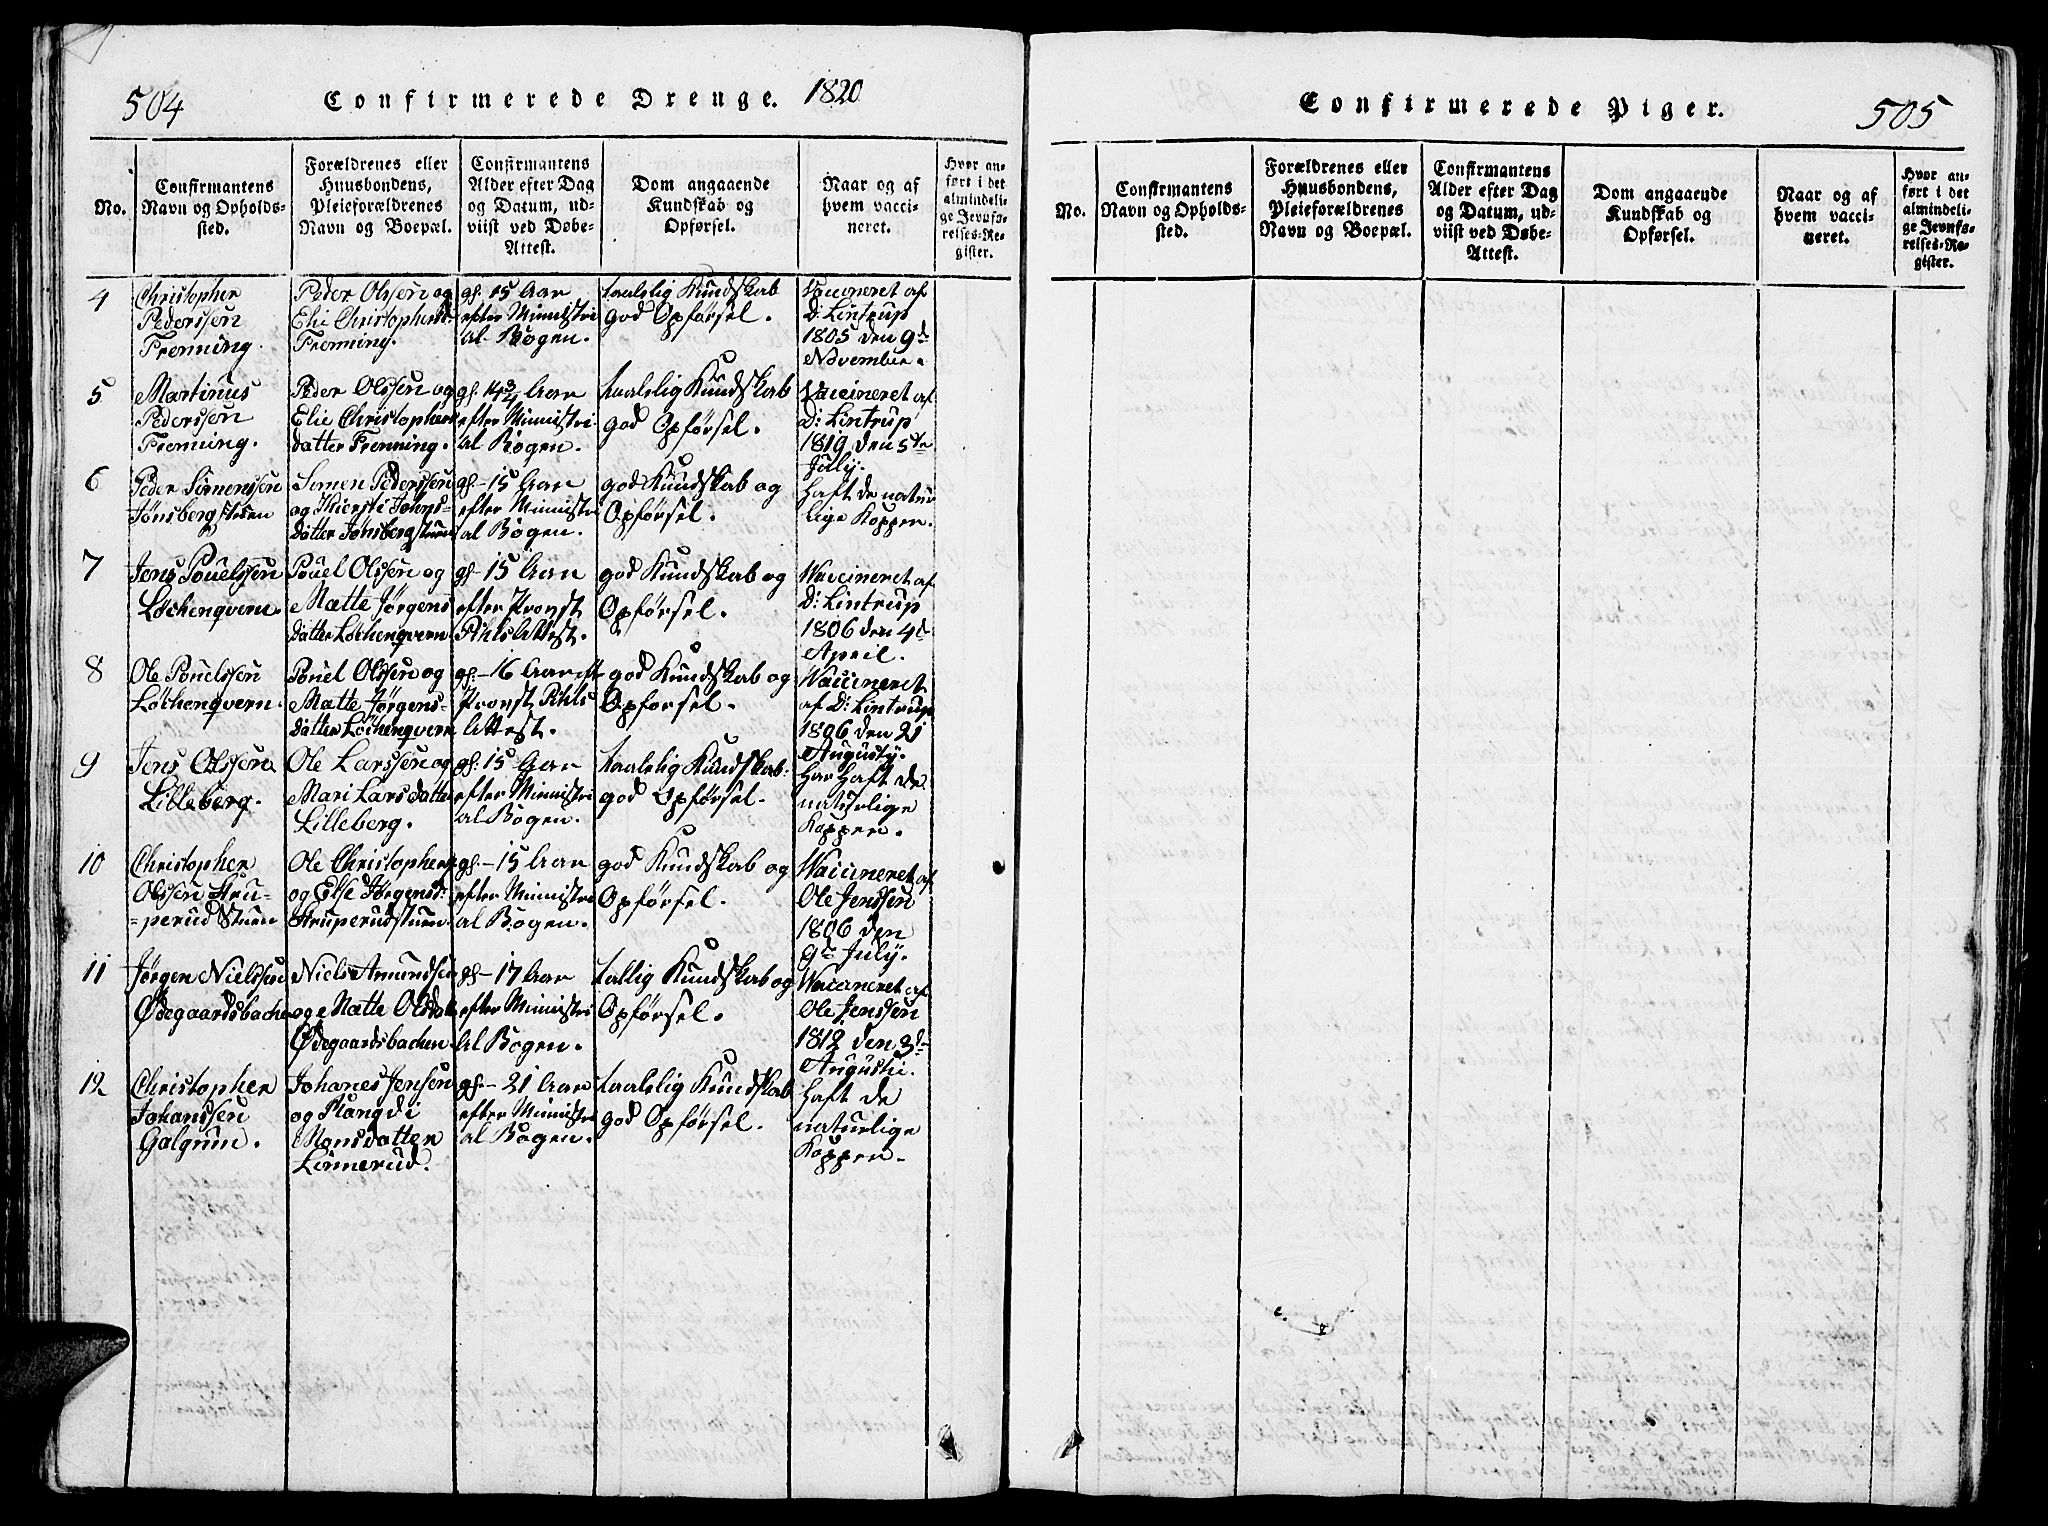 504
Confirmerede Drenge. 1820
No.
Confirmantens
Navn og Opholds-
sted.
Forældrenes eller
Huusbondens,
Pleieforældrenes
Navn og Boepæl.
Confirmantens
Alder efter Dag
og Datum, ud-
viist ved Døbe-
Attest.
Dom angaaende
Kundskab og
Opførsel.
Naar og af
hvem vacci-
neret.
Hvor an-
ført i det
almindeli-
ge Jevnfø-
relses-Re-
gister.
4
Christopher
Pederssøn
Frenning.
Peder Olssen og
Elie Christophersd:
Frenning.
gl. 15 Aar
efter Ministri
al Bogen.
taalelig Kundskab
god Opførsel.
Vaccineret af
D: Lintrup
1805 den 9de
November.
5
Martinus
Pederssøn
Frenning.
Peder Olssen og
Elie Christophers
datter Frenning.
gl. 14 3/4 Aar
efter Ministri
al Bogen.
taalelig Kundskab
god Opførsel.
Vaccineret af
D: Lintrup
1819 den 5te
July.
6
Peder Simenssen
Jønsberg stuen
Simen Pederssen
og Kiersti Johns-
datter Jønsbergstuen
gl. 15 Aar
efter Ministri
al Bogen.
god Kundskab og
Opførsel.
haft de natur
lige Kopper.
7
Jens Pouelssen
Løchenqvern.
Pouel Olssen og
Mætte Jørgens
datter Løchenqvern
gl. 15 Aar
efter Provst
Pihls Attest.
god Kundskab og
Opførsel.
Vaccineret af
D: Lintrup
1806 den 4de
April.
8
Ole Pouelssen
Løchenqvern.
Pouel Olssen og
Mætte Jørgens-
datter Løchenqvern
gl. 16 Aar eft
Provst Pihls
Attest.
god Kundskab og
Opførsel.
Vaccineret
af D: Lintrup
1806 den 21
Augusty.
9
Jens Olssen
Lilleberg.
Ole Larssen og
Mari Larsdatter
Lilleberg.
gl. 15 Aar
efter Ministri
al Bogen.
taalelig Kundskab
god Opførsel.
Har haft de
naturlige
Kopper.
10
Christopher
Olssen Stru-
=perud Stuen
Ole Christophers
og Else Jørgensd:
Struperudstuen.
gl. 15 Aar
efter Ministri
al Bogen.
god Kundskab og
Opførsel.
Vaccineret af
Ole Jenssen
1806 den
9de July.
11
Jørgen Nielssen
Ødegaardsbachen
Niels Amundsen
og Mætte Olsdat
Ødegaardsbachen.
gl. 17 Aar
efter Ministri
al Bogen.
tallig Kundskab og
Opførsel.
Vaccineret af
Ole Jenssen
1812 den 3de
Augusti.
12
Christopher
Johanssen
Galgum.
Johanes Jensen
og Rangdi
Monsdatter
Linnerud.
gl. 21 Aar
efter Ministri
al Bogen.
taalelig Kundskab
god Opførsel.
Haft de
naturlige
Kopper.
Confirmerede Piger. 505
No.
Confirmantens
Navn og Opholds-
sted.
Forældrenes eller
Huusbondens,
Pleieforældrenes
Navn og Boepæl.
Confirmantens
Alder efter Dag
og Datum, ud-
viist ved Døbe-
Attest.
Dom angaaende
Kundskab og
Opførsel.
Naar og af
hvem vacci-
neret.
Hvor an-
ført i det
almindeli-
ge Jevnfø-
relses-Re-
gister.